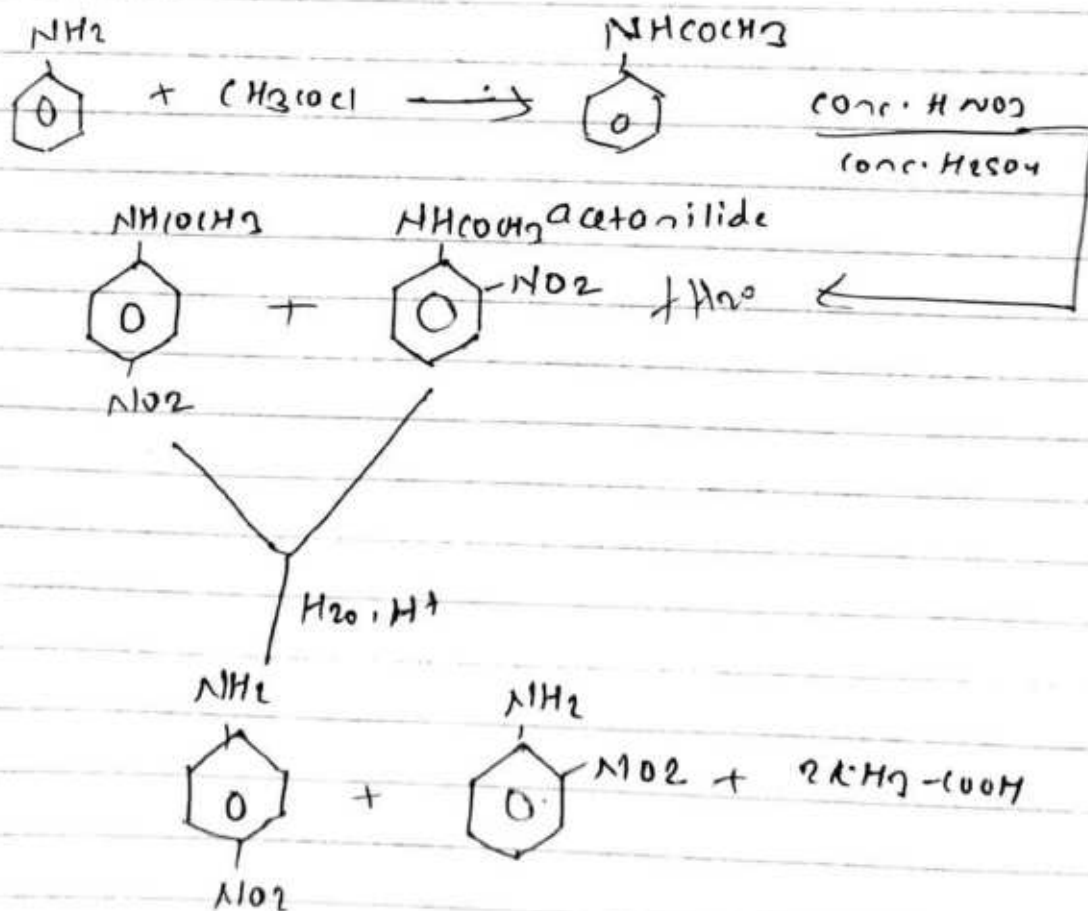 NH2 NHCOCH3
+ CH3COCl conc. HNO3
conc. H2SO4
NHCOCH3 NHCOCH3 acetanilide
+ NO2 + H2O
NO2
H2O, H+
NH2 NH2
+ NO2 + 2CH3-COOH
NO2